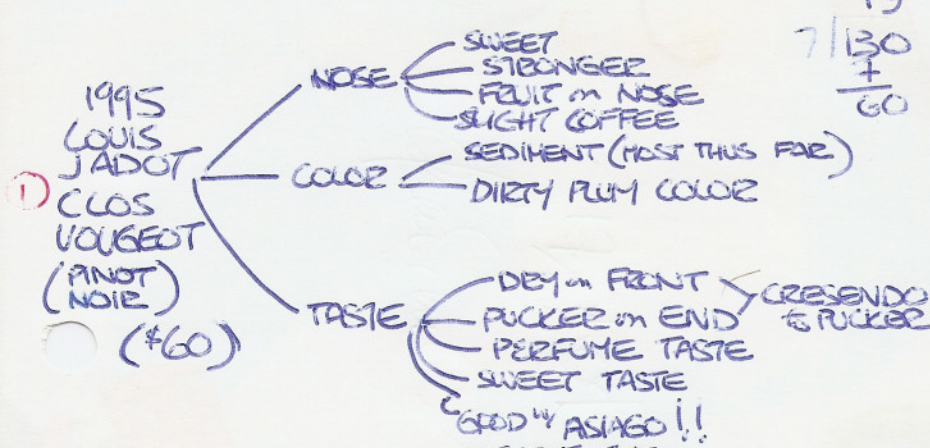 1995
LOUIS
JADOT
① CLOS
VOUGEOT
(PINOT
NOIR)
($60)
NOSE
SWEET
STRONGER
FRUIT on NOSE
SLIGHT COFFEE
COLOR
SEDIMENT (MOST THUS FAR)
DIRTY PLUM COLOR
TASTE
DRY on FRONT
PUCKER on END
CRESENDO
to PUCKER
PERFUME TASTE
SWEET TASTE
GOOD w/ ASIAGO!!
7/130
60